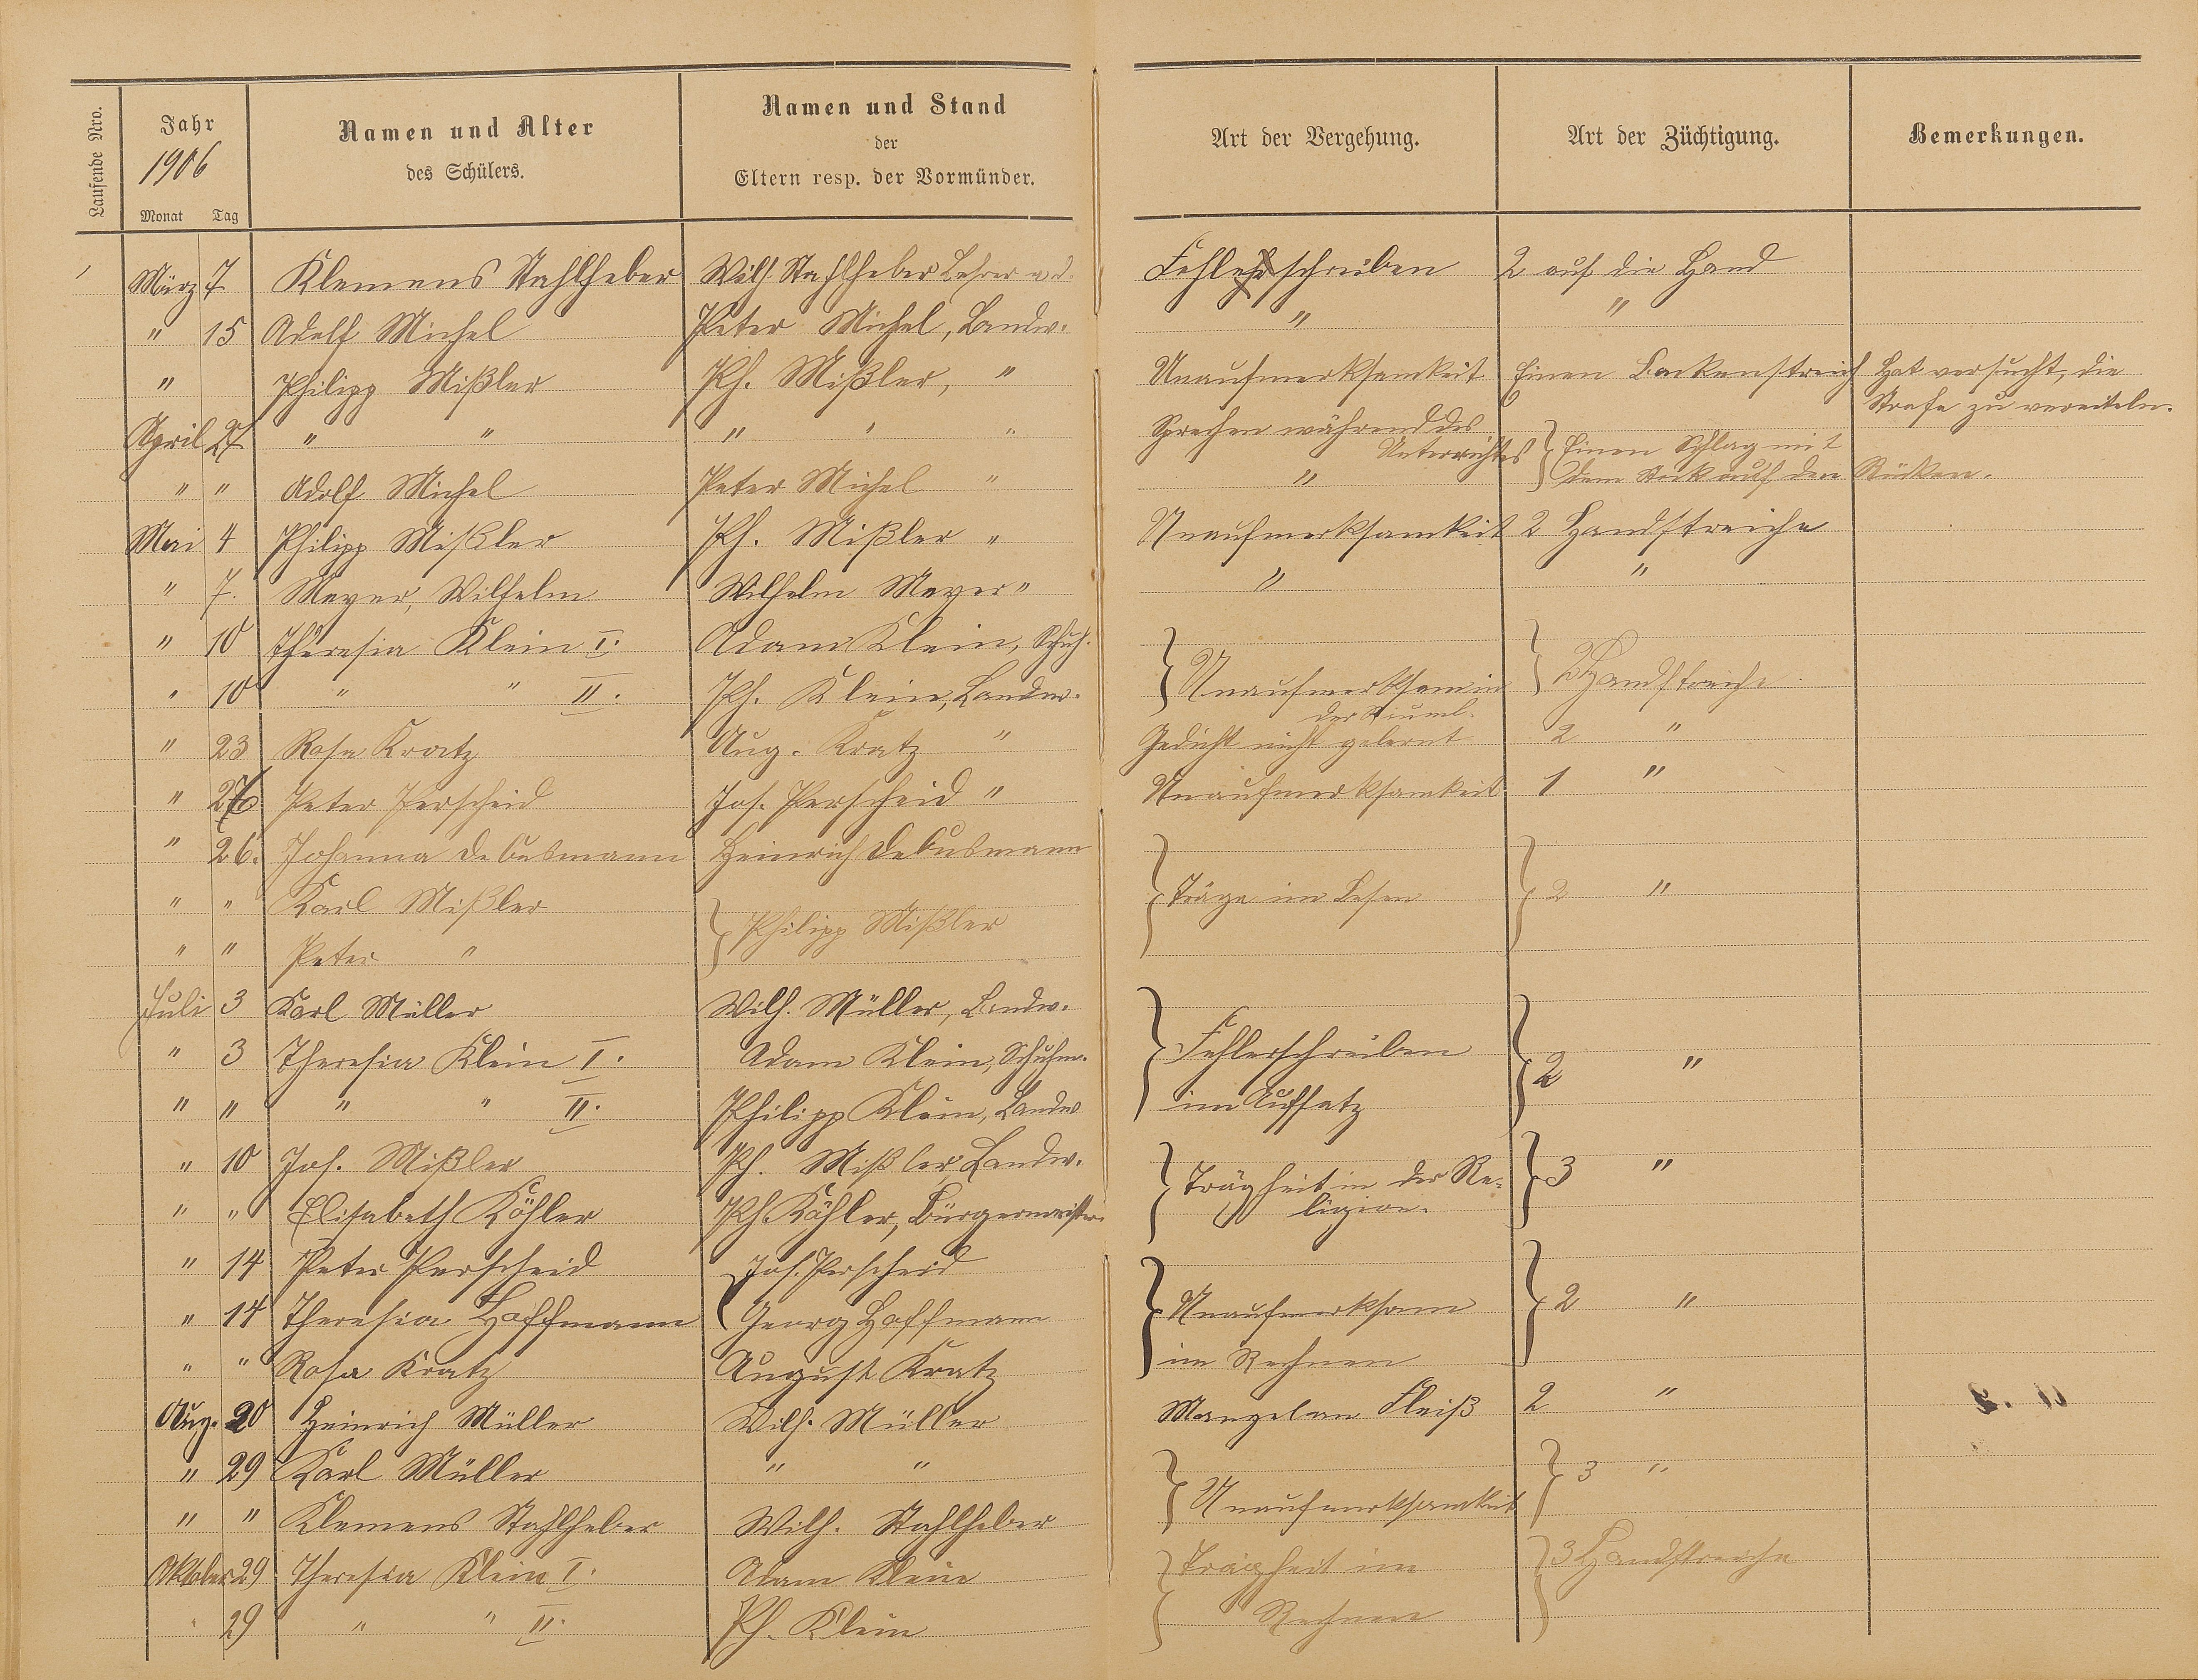 Laufende Nro.
Jahr
1906
Monat Tag
Namen und Alter
des Schülers.
Namen und Stand
der
Eltern resp. der Vormünder.
Art der Vergehung.
Art der Züchtigung.
Bemerkungen.
März 7 Klemens Stahlheber Wilh. Stahlheber Lehrer a. d. Fehlerschreiben 2 auf die Hand
" 15 Adolf Michel Peter Michel, Landw. " "
" Philipp Mißler Ph. Mißler, " Unaufmerksamkeit Einen Backenstreich Hat versucht, die
Strafe zu vereiteln.
April 27 " " " " " Sprechen während des
Unterrichtes Einen Schlag mit
" " Adolf Michel Peter Michel " " dem Stock auf den Rücken.
Mai 4 Philipp Mißler Ph. Mißler " Unaufmerksamkeit 2 Handstreiche
" 7. Meyer, Wilhelm Wilhelm Meyer " " "
" 10 Theresia Klein I. Adam Klein, Schuh.
" 10 " " II. Ph. Klein, Landw. Unaufmerksam in 2 Handstreiche
der
" 23 Rosa Kratz Aug. Kratz " Gedicht nicht gelernt 2 "
" 26 Peter Perscheid Jos. Perscheid " Unaufmerksamkeit 1 "
" 26. Johanna Debusmann Heinrich Debusmann
" " Karl Mißler Philipp Mißler Träge im Lesen 2 "
" " Peter "
Juli 3 Karl Müller Wilh. Müller, Landw.
" 3 Theresia Klein I. Adam Klein, Schuhm. Fehlerschreiben 2 "
" " " " II. Philipp Klein, Landw im Aufsatz
" 10 Jos. Mißler Ph. Mißler, Landw. Trägheit in der Re- 3 "
" " Elisabeth Köhler Ph. Köhler, Bürgermeister. ligion.
" 14 Peter Perscheid Jos. Perscheid
" 14 Theresia Hoffmann Georg Hoffmann Unaufmerksam 2 "
" " Rosa Kratz August Kratz im Rechnen
Aug. 20 Heinrich Müller Wilh. Müller Mangel an Fleiß 2 "
" 29 Karl Müller " " 3 "
" " Klemens Stahlheber Wilh. Stahlheber Unaufmerksamkeit
Oktober 29 Theresia Klein I. Adam Klein Trägheit im 3 Handstreiche
" 29 " " II. Ph. Klein Rechnen